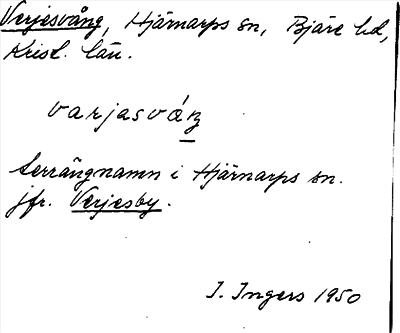 Verjesvång, Hjärnarps sn, Bjäre hd,
Krist. län.
varjasváŋ
terrängnamn i Hjärnarps sn.
jfr. Verjesby.
I. Ingers 1950